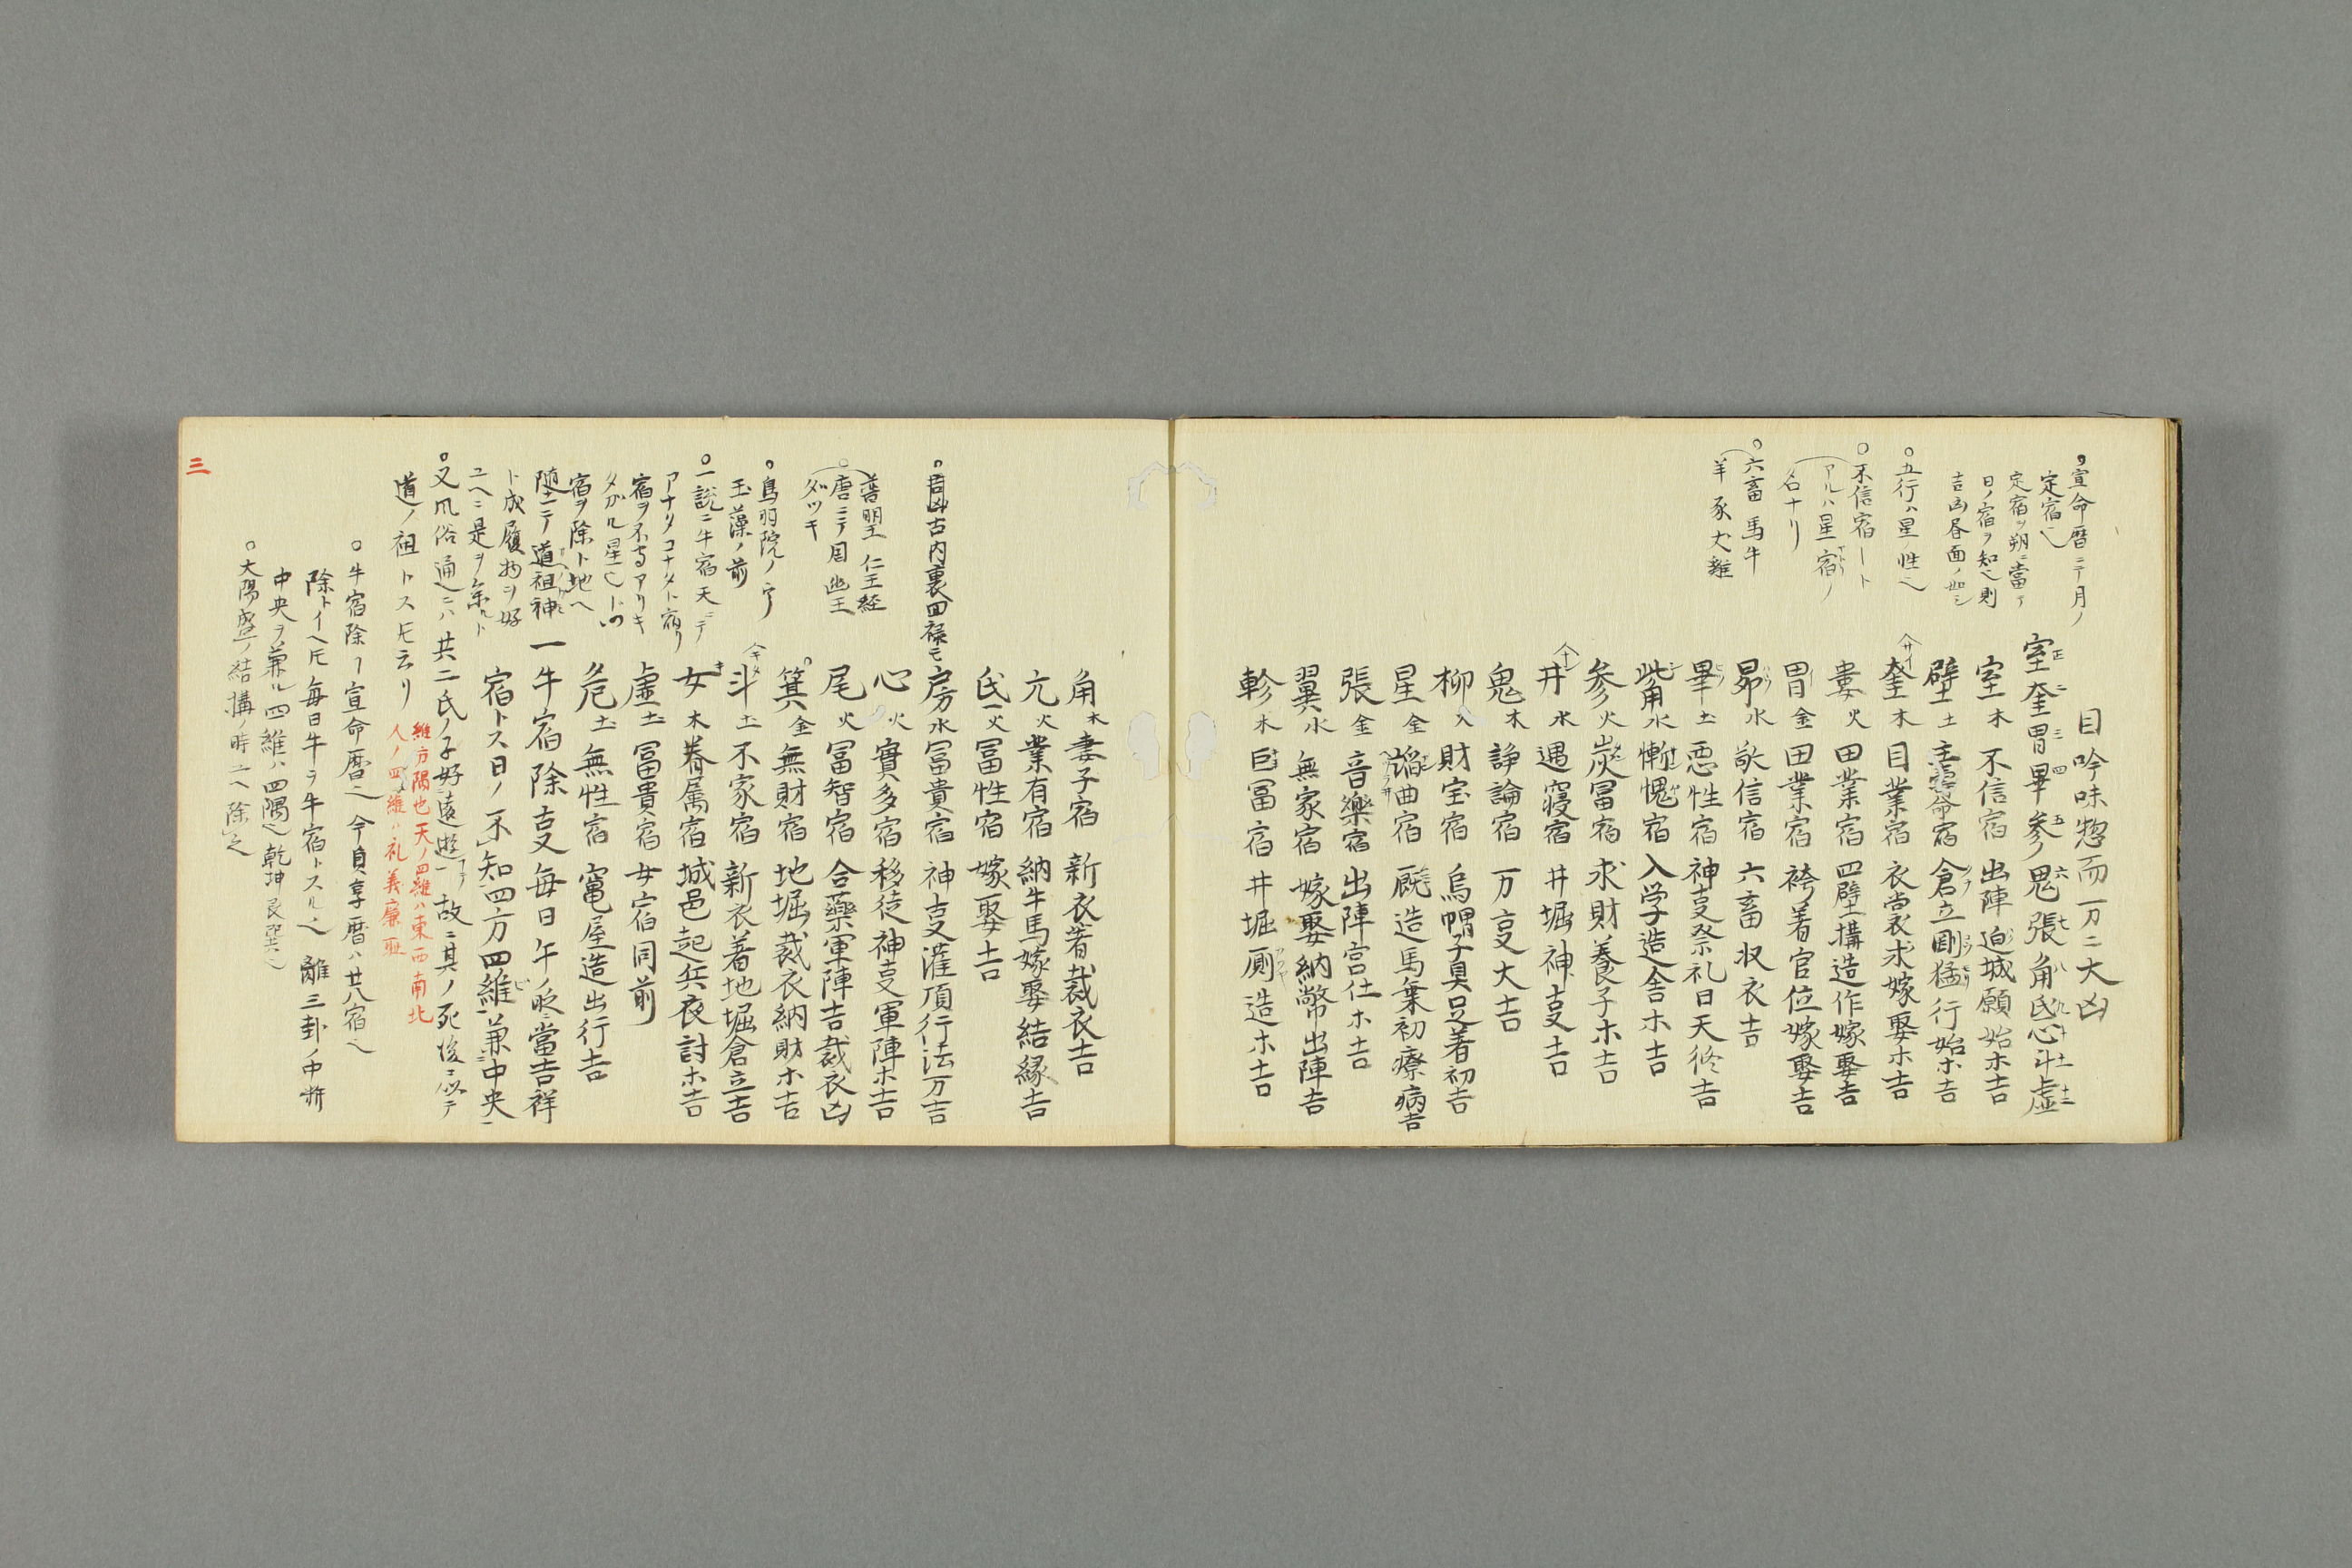 目吟味惣而万ニ大凶
室正奎二胃三畢四参五鬼六張七角八氐九心十斗十一虚十二
室木 不信宿 出陣 迫城願始ホ吉
壁土 主寿命宿 倉立剛猛行始ホ吉
奎木 目業宿 衣裳求嫁娶ホ吉
婁火 田業宿 四壁構造作嫁娶吉
胃金 田業宿 袴着官位嫁娶吉
昴水 敬信宿 六畜収衣吉
畢土 悪性宿 神事祭礼日天修吉
觜水 慚愧宿 入学造舎ホ吉
参火 炭冨宿 求財養子ホ吉
井水 遇寝宿 井堀神事吉
鬼木 諍論宿 万事大吉
柳火 財宝宿 烏帽子具足着初吉
星金 諂曲宿 厩造馬乗初療病吉
張金 音樂宿 出陣宮仕ホ吉
翼水 無家宿 嫁娶納幣出陣吉
軫木 巨冨宿 井堀厠造ホ吉
○宣命暦ニテ月ノ
定宿也
定宿ヲ朔ニ當テ
日ノ宿ヲ知也則
吉凶昼面ノ如シ
○五行ハ星ノ性也
○不信宿ート
アルハ星宿ノ
名ナリ
○六畜 馬牛
羊豕犬雞
角木 妻子宿 新衣著裁衣吉
亢火 業有宿 納牛馬嫁娶結縁吉
氐火 冨性宿 嫁娶吉
房水 冨貴宿 神事灌頂行法万吉
心火 實多宿 移徒神事軍陣ホ吉
尾火 冨智宿 合藥軍陣吉裁衣凶
箕金 無財宿 地堀裁衣納財ホ吉
斗土 不家宿 新衣着地堀倉立吉
女木 眷属宿 城邑起兵夜討ホ吉
虚土 冨貴宿 女宿同前
危土 無性宿 竃屋造出行吉
一牛宿除事毎日午ノ時ニ當吉祥
宿トス日ノ不知四方四維兼中央
○吉凶古内裏四禄モ
普明王 仁王経
○唐ニテ周幽王
ダツキ
○鳥羽院ノ宇
玉藻ノ前
○一説ニ牛宿天ニテ
アナタコナタト宿リ
宿ヲ不守アリキ
タガル星也トツ
宿ヲ除ト地ヘ
随テ道祖神
ト成履物ヲ好
ユヘニ是ヲ祭ルト
○又風俗通ニハ共工氏ノ子好遠遊ヿヲ故ニ其ノ死後ニ以テ
道ノ祖トス圧云リ
維方隅也天ノ四維ハ東西南北
人ノ四維ハ礼義廉耻
○牛宿除ヿ宣命暦也今貞享暦ハ廿八宿也
除トイヘ圧毎日午ヲ牛宿トスル也 離三卦ノ中断
中央ヲ兼ル四維ハ四隅也乾坤艮巽也
○大陽盛ノ結構ノ時ユヘ除之
三